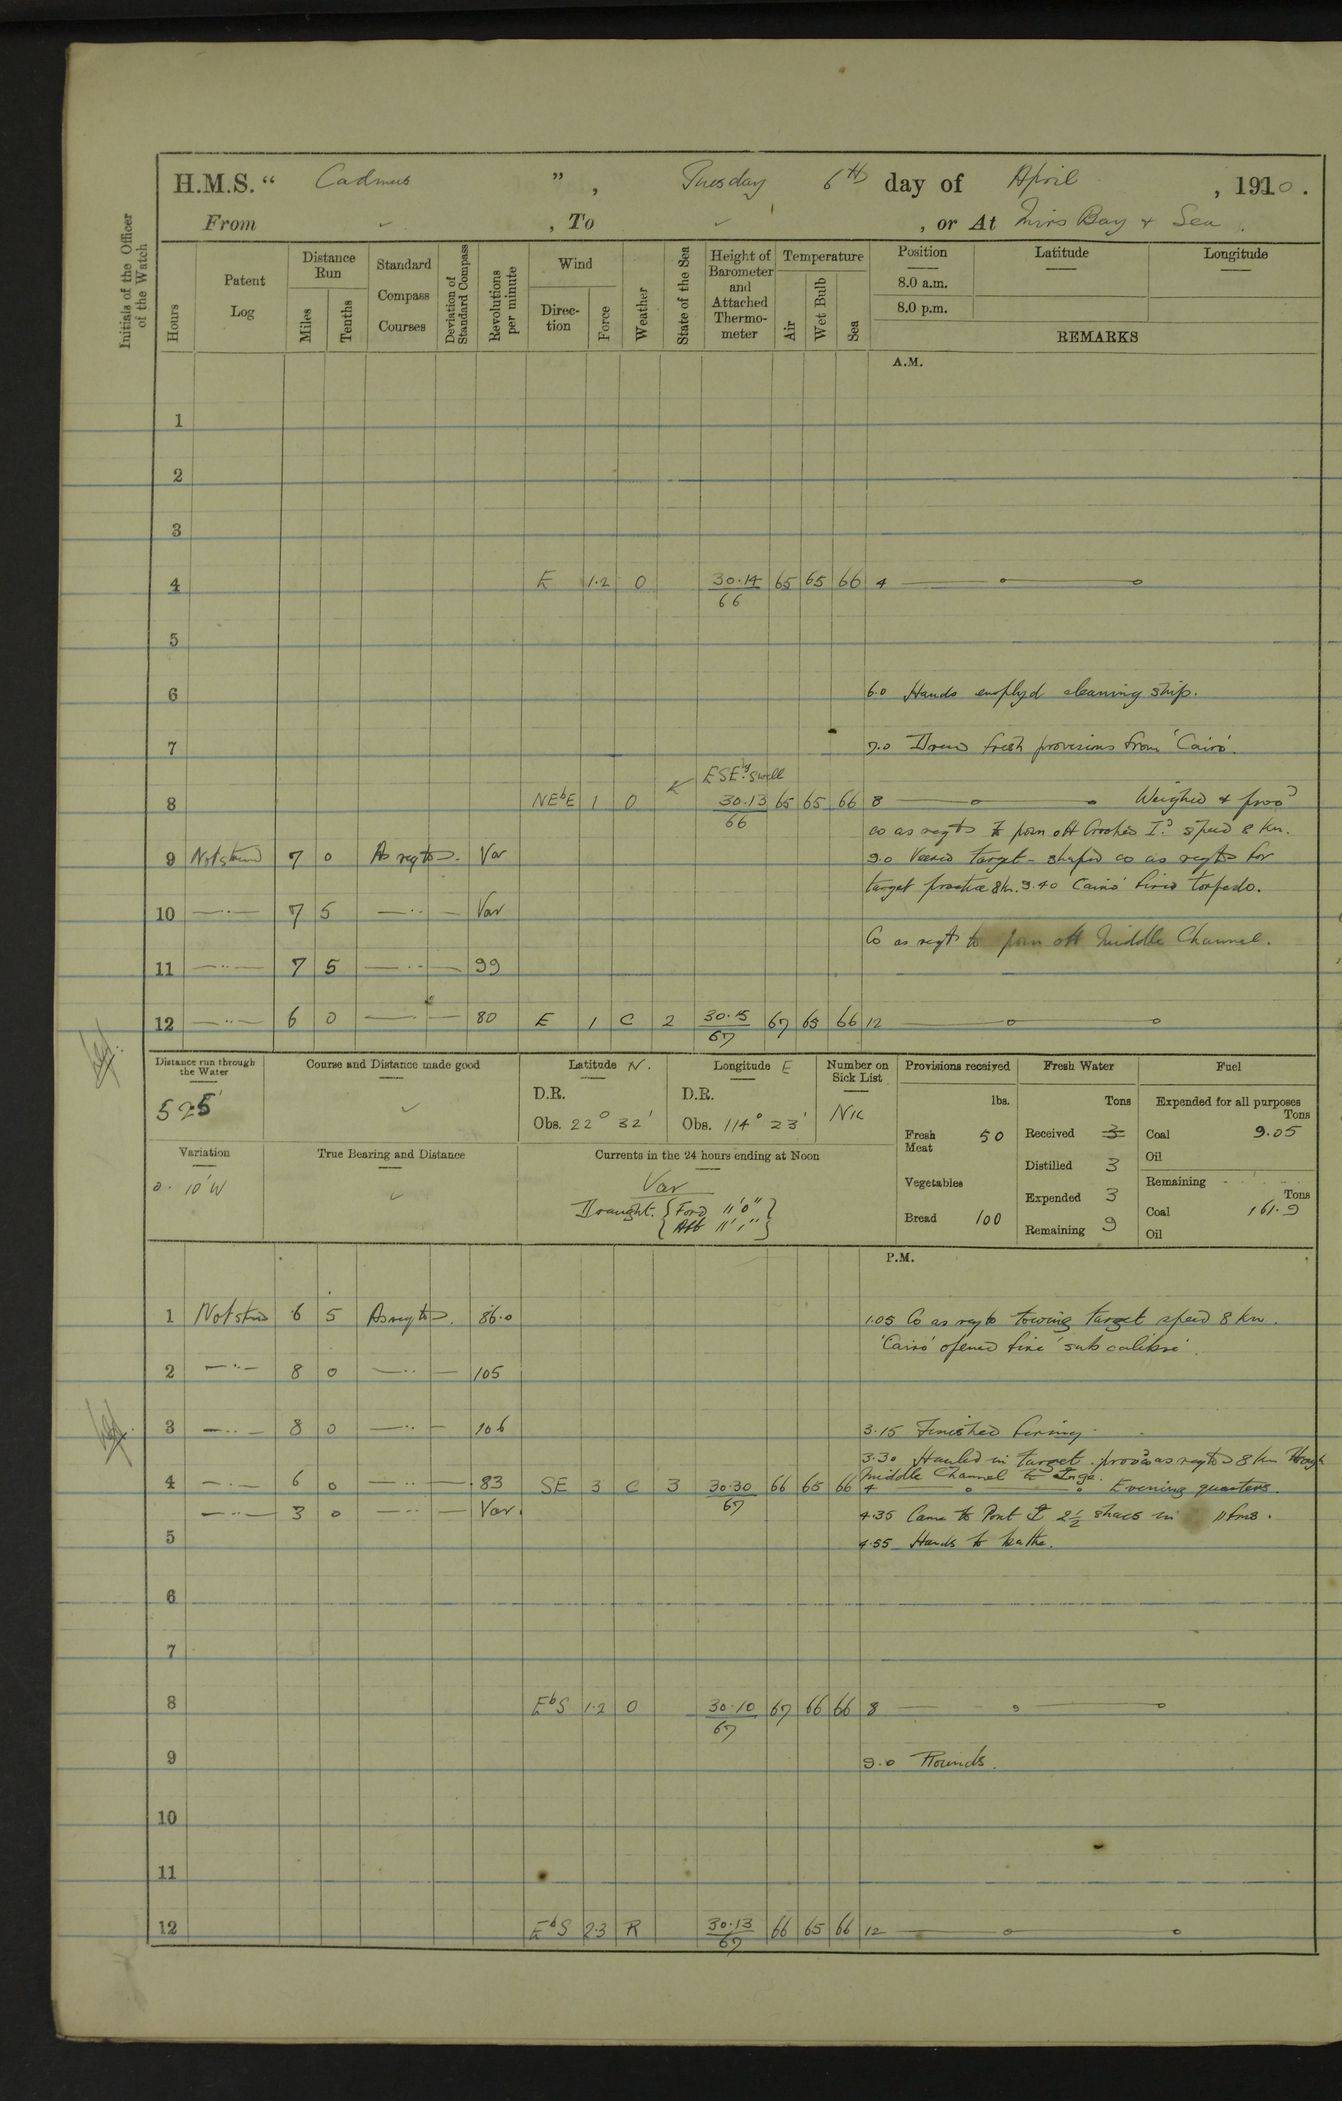 H.M.S. “ Cadmus ” , Tuesday 6th day of April , 1910 .
From ✓ , To ✓ , or At Mirs Bay & Sea .
Initials of the Officer of the Watch
Hours
Patent Log
Distance Run
Miles
Tenths
Standard Compass Courses
Deviation of Standard Compass
Revolutions per minute
Wind
Direction
Force
Weather
State of the Sea
Height of Barometer and Attached Thermometer
Temperature
Air
Wet Bulb
Sea
Position
8.0 a.m.
8.0 p.m.
Latitude
Longitude
REMARKS
A.M.
1
2
3
4 E 1·2 O 30·14 65 65 66 4
66
5
6 6.0 Hands employd cleaning ship.
7 7.0 Drew fresh provisions from 'Cairo'.
ESEly. Swell
8 NEbE 1 O 30·13 65 65 66 8 Weighed & procd
66
co as reqts to posn off Crooked Id. speed 8 kn.
9 Not strmd 7 0 As reqts. Var 9.0 Veered target - shaped co as reqts for
target practice 8kn. 9.40 'Cairo' fired torpedo.
10 —··— 7 5 —··— Var
Co as reqts to posn off Middle Channel.
11 —··— 7 5 —··— 99
12 —··— 6 0 —··— 80 E 1 C 2 30·15 67 65 66 12
67
Distance run through the Water
52·5'
Course and Distance made good
✓
Latitude N.
D.R.
Obs. 22° 32'
Longitude E
D.R.
Obs. 114° 23'
Number on Sick List
Nil
Provisions received
lbs.
Fresh Meat 50
Vegetables
Bread 100
Fresh Water
Tons
Received 3
Distilled 3
Expended 3
Remaining 9
Fuel
Expended for all purposes
Tons
Coal 9.05
Oil
Remaining
Tons
Coal 161.9
Oil
Variation
0. 10' W
True Bearing and Distance
✓
Currents in the 24 hours ending at Noon
Var
Draught. { Ford 11' 0" }
{ Aft 11' 1" }
P.M.
1 Not strmd 6 5 As reqts. 86.0 1.05 Co as reqts towing target speed 8 kn.
'Cairo' opened fire 'sub calibre'.
2 —··— 8 0 —··— 105
3 —··— 8 0 —··— 106 3.15 Finished firing.
3.30 Hauled in target. procd as reqts 8 kn through
Middle Channel to Ange.
4 —··— 6 0 —··— 83 SE 3 C 3 30·30 66 65 66 4 Evening quarters.
67
—··— 3 0 —··— Var. 4.35 Came to Port 2½ shacs in 11 fms.
5 4.55 Hands to bathe.
6
7
8 EbS 1·2 O 30·10 67 66 66 8
67
9 9.0 Rounds.
10
11
12 EbS 2·3 R 30·13 66 65 66 12
67